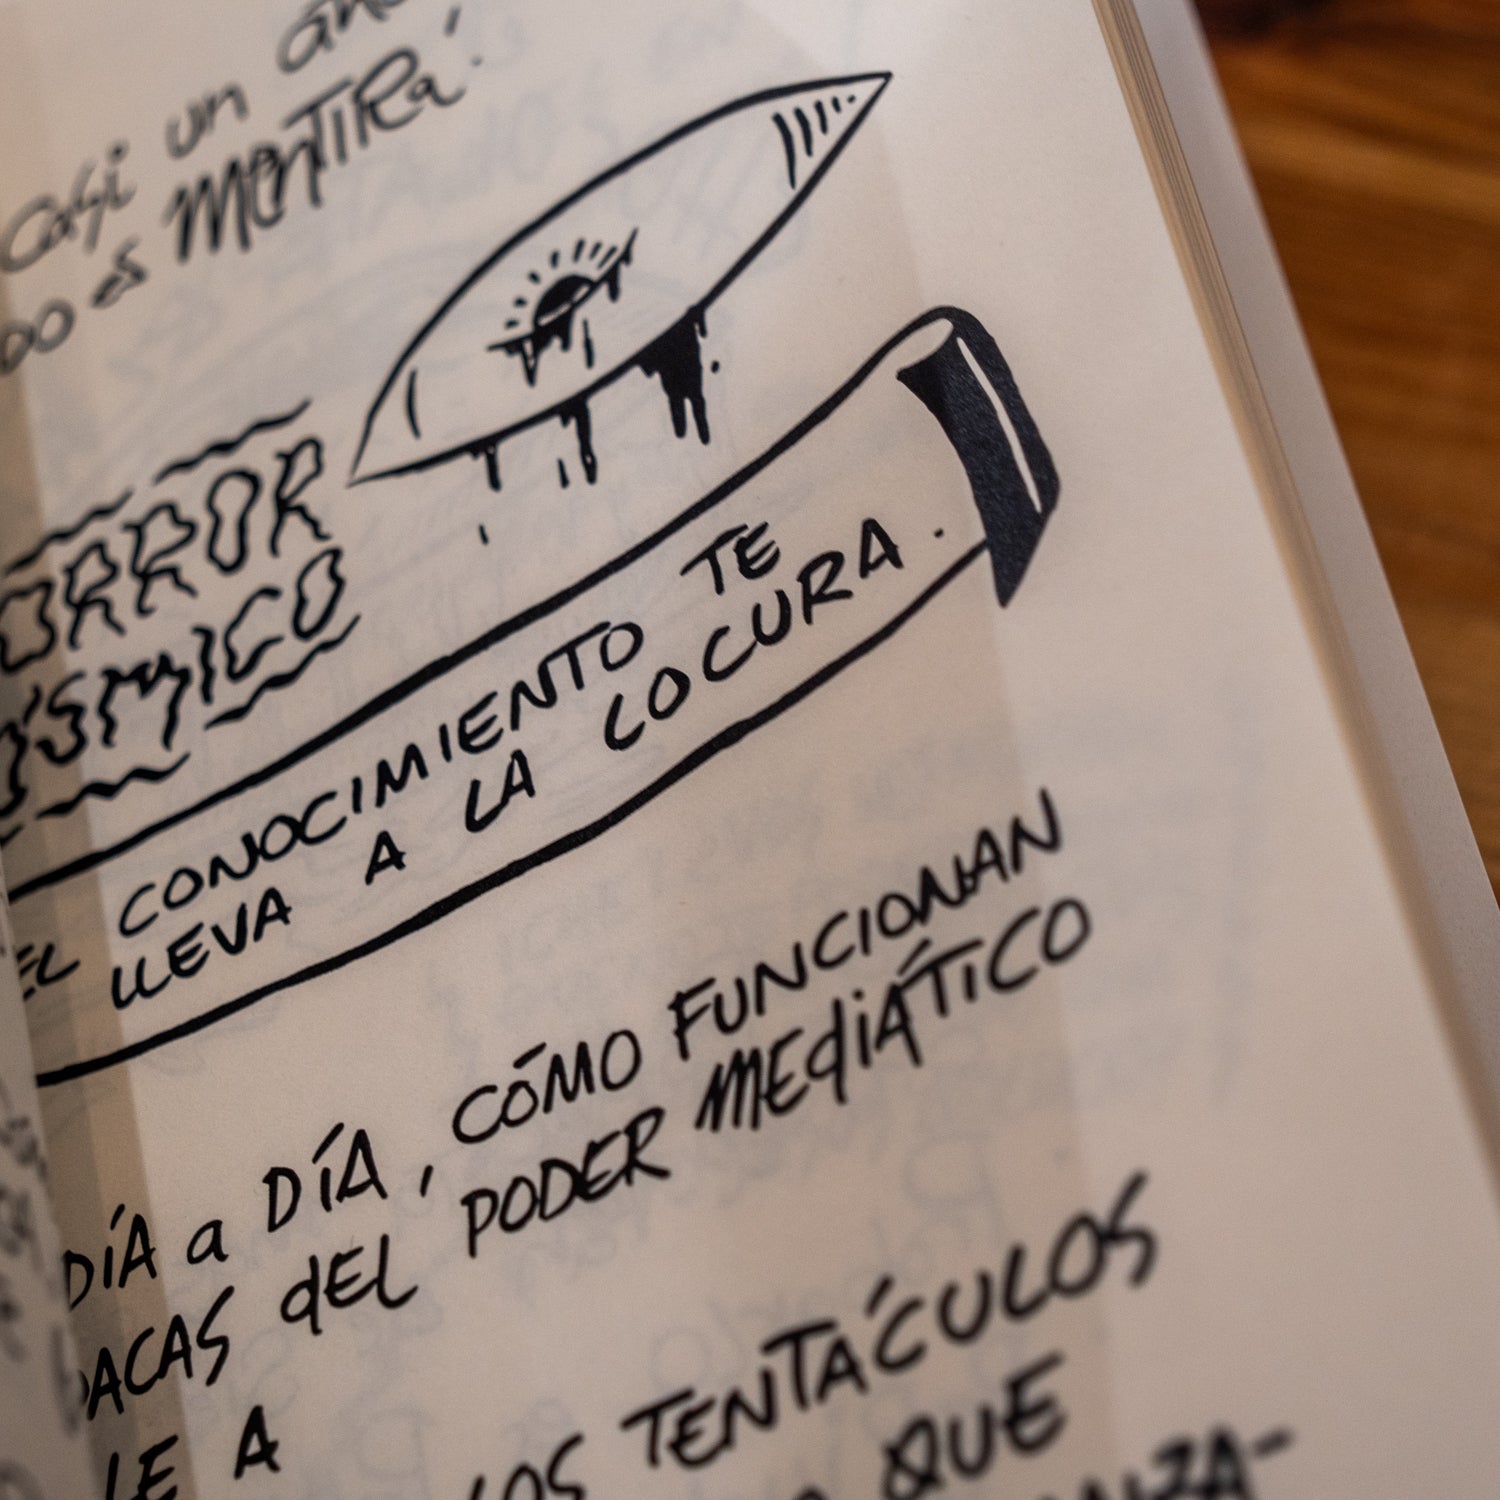 casi un
es mentira!
ORROR
ÓSMICO
EL CONOCIMIENTO TE
LLEVA A LA LOCURA.
DÍA a DÍA, CÓMO FUNCIONAN
ACAS dEL PODER MEdIÁTICO
LE A
LOS TENTÁCULOS
QUE